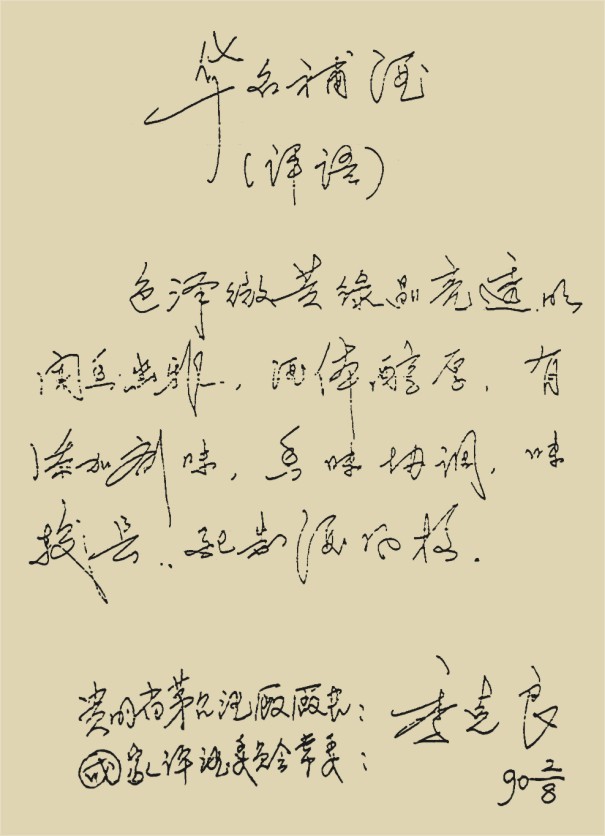 华名補酒
(评语)
色泽微黄綠晶亮透明
闻香幽雅,酒体醇厚,有
添加剂味,香味协调,味
较长,配制酒风格.
贵州省茅台酒厰厰长: 季克良
国家评酒委员会常委:
90 2/8